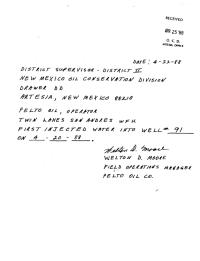 RECEIVED
APR 25 '88
O. C. D.
ARTESIA, OFFICE
DATE: 4-22-88
DISTRICT SUPERVISOR - DISTRICT II
NEW MEXICO OIL CONSERVATION DIVISION
DRAWER DD
ARTESIA, NEW MEXICO 88210
PELTO OIL, OPERATOR
TWIN LAKES SAN ANDRES WFU
FIRST INJECTED WATER INTO WELL # 91
ON 4-20-88.
Welton D. Moore
WELTON D. MOORE
FIELD OPERATIONS MANAGER
PELTO OIL CO.